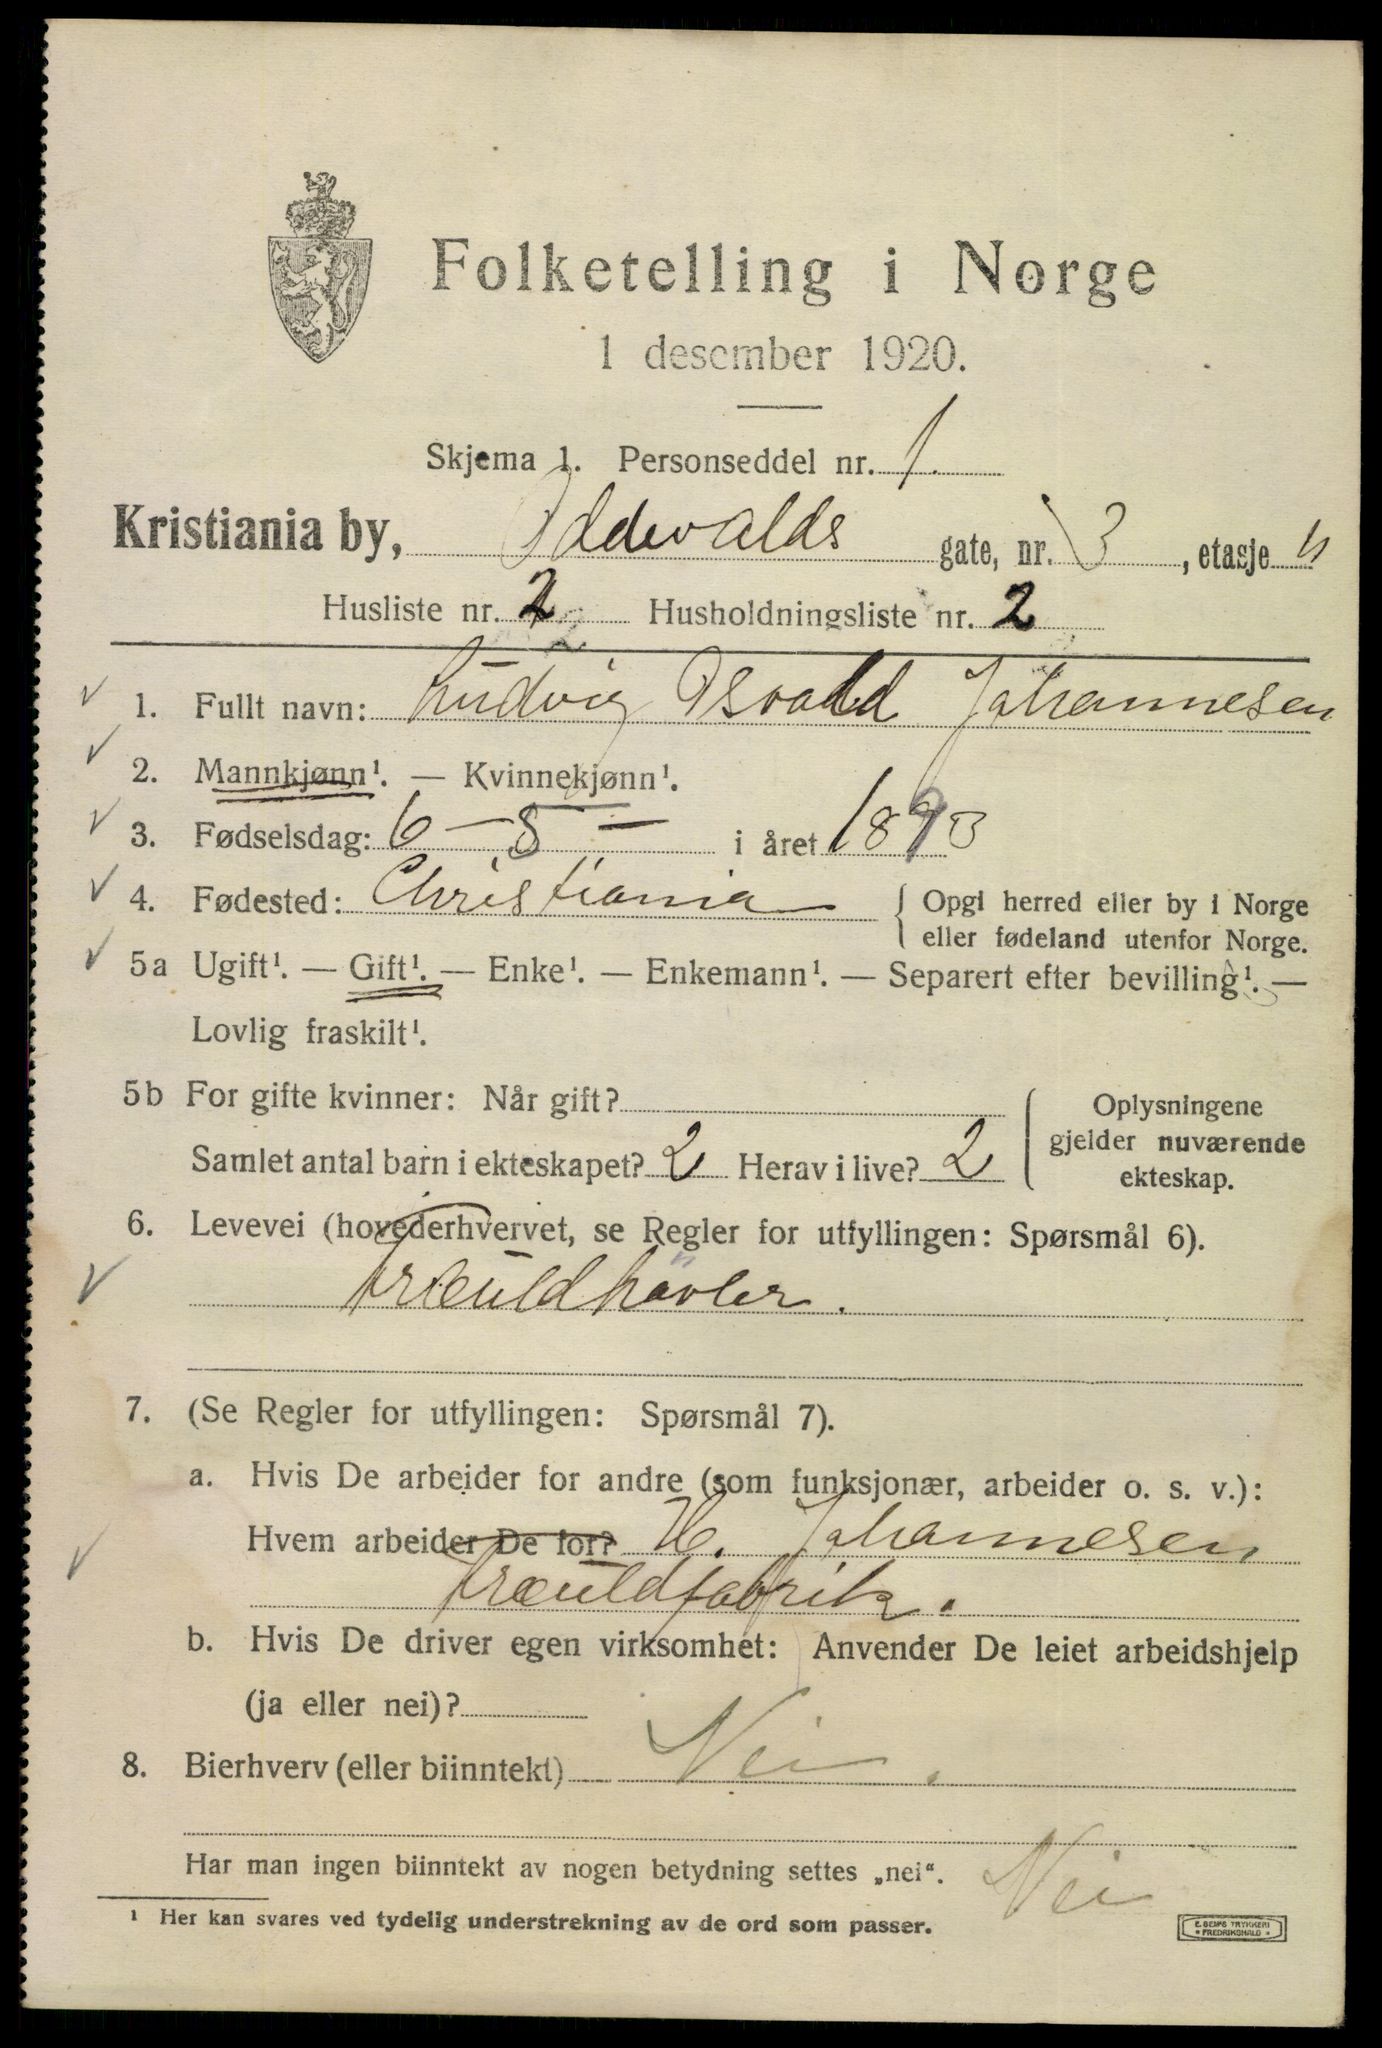 Folketelling i Norge
1 desember 1920.
Skjema 1. Personseddel nr. 1.
Kristiania by, Oddevalds gate, nr. 3, etasje
Husliste nr. 2 Husholdningsliste nr. 2
2
1. Fullt navn: Ludvig Osvald Johannesen
2. Mannkjønn¹. — Kvinnekjønn¹.
3. Fødselsdag: 6 – 5 – i året 1893
4. Fødested: Christiania { Opgi herred eller by i Norge
eller fødeland utenfor Norge.
5a Ugift¹. — Gift¹. — Enke¹. — Enkemann¹. — Separert efter bevilling¹. —
Lovlig fraskilt¹.
5b For gifte kvinner: Når gift? { Oplysningene
gjelder nuværende
ekteskap.
Samlet antal barn i ekteskapet? 2 Herav i live? 2
6. Levevei (hovederhvervet, se Regler for utfyllingen: Spørsmål 6).
Træuldhøvler.
7. (Se Regler for utfyllingen: Spørsmål 7).
a. Hvis De arbeider for andre (som funksjonær, arbeider o. s. v.):
Hvem arbeider De for? H. Johannesen
Træuldfabrik.
b. Hvis De driver egen virksomhet: Anvender De leiet arbeidshjelp
(ja eller nei)?
8. Bierhverv (eller biinntekt) Nei.
Har man ingen biinntekt av nogen betydning settes „nei“. Nei
¹ Her kan svares ved tydelig understrekning av de ord som passer.
E. SEMS TRYKKERI
* FREDRIKSHALD *